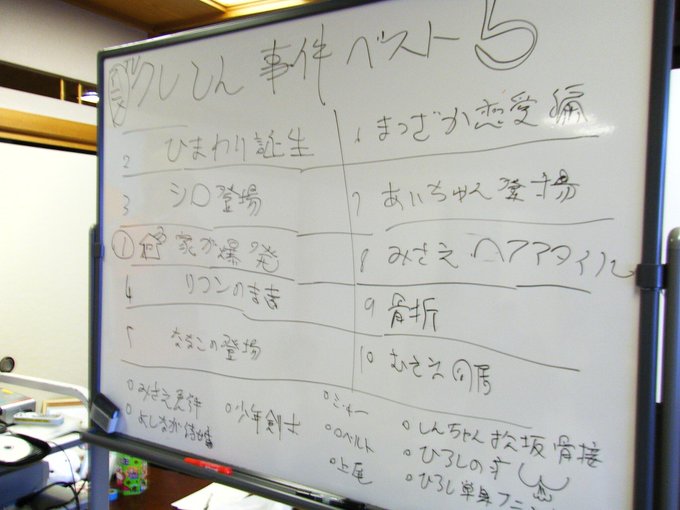 クレしん 事件 ベスト5
2 ひまわり誕生
3 シロ登場
① 家が爆発
4 リコンの危機
5 ななこの登場
6 まつざか恋愛編
7 あいちゃん登場
8 みさえ ヘアスタイル
9 骨折
10 むさえ同居
○みさえ
○よしなが結婚
○少年剣士
○ミッキー
○ロベルト
○上尾
○しんちゃん 骨接
○ひろしの
○ひろし単身